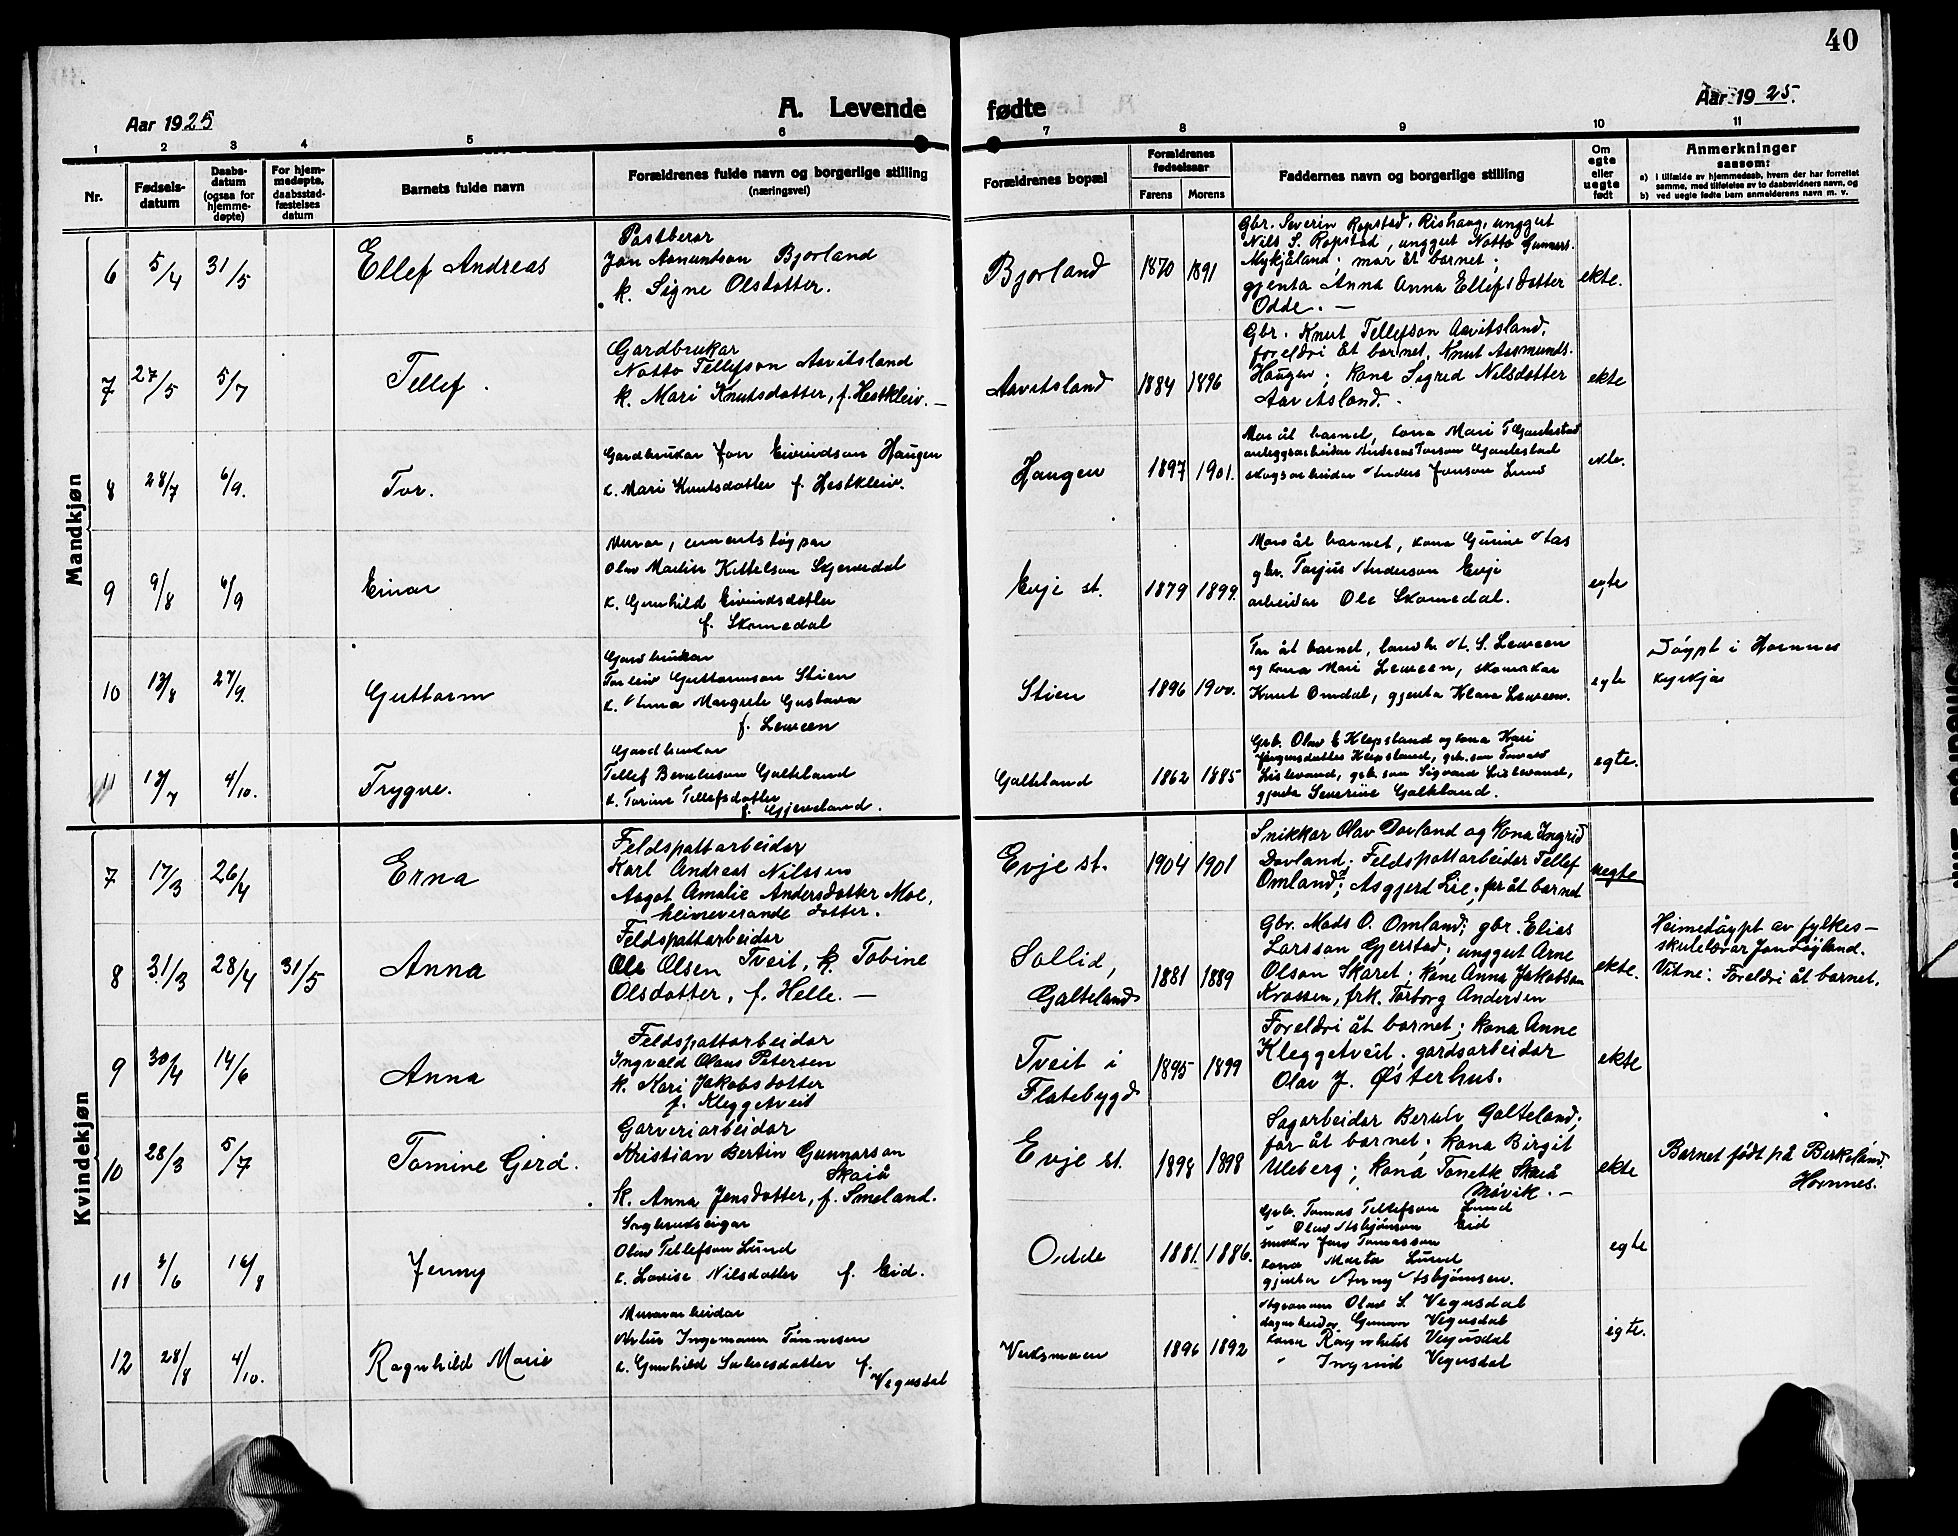 40
Aar 1925
A. Levende
fødte
Aar 1925.
1 2 3 4 5 6 7 8 9 10 11
Nr.
Fødsels-
datum
Daabs-
datum
(ogsaa for
hjemme-
døpte)
For hjem-
medøpte,
daabsstad-
fæstelses
datum
Barnets fulde navn
Forældrenes fulde navn og borgerlige stilling
(næringsvei)
Forældrenes bopæl
Forældrenes
fødselsaar
Farens Morens
Faddernes navn og borgerlige stilling
Om
egte
eller
uegte
født
Anmerkninger
saasom:
a) i tilfælde av hjemmedaab, hvem der har forrettet
samme, med tilføielse av to daabsvidners navn, og
b) ved uegte fødte barn anmelderens navn m. v.
Mandkjøn
6 5/4 31/5
Ellef Andreas
Postberar
Jon Asmundson Bjorland
k. Signe Olsdotter.
Bjorland
1870 1891
Gbr. Severin Ropstad, Rishaug, unggut
Nils S. Ropstad, unggut Notto Gunnars.
Mykjåland; mor åt barnet;
gjenta Anna Anna Ellefsdotter
Odde. —
ekte.
7 27/5 5/7
Tellef.
Gardbrukar
Notto Tellefson Aavitsland
k. Mari Knutsdotter, f. Hestkleiv. —
Aavitsland
1884 1896
Gbr. Knut Tellefson Aavitsland,
foreldri åt barnet, Knut Aasmunds.
Haugen; kona Sigrid Nilsdotter
Aavitsland.
ekte
8 28/7 6/9.
Tor.
Gardbrukar Jon Eivindson Haugen
k. Mari Knutsdotter f. Hestkleiv.
Haugen
1897 1901.
Mor åt barnet, kona Mari T Gautestad
anleggsarbeidar Andreas Torson Gautestad
skogsarbeidar Anders Jonson Lund
ekte.
9 9/8 6/9
Einar
Murar, cementstøypar
Olav Martin Kittelson Skjeredal
k. Gunhild Eivindsdotter
f. Skomedal
Evje st.
1879 1899.
Mor åt barnet, kona Gurine Aas
gbr. Tarjus Anderson Evje
arbeidar Ole Skomedal.
egte
10 13/8 27/9.
Guttorm
Gardbrukar
Torleiv Guttormson Stien
k. Anna Margrete Gustava
f. Leween
Stien
1896 1900.
Far åt barnet, landh. A. S. Leween
og kona Mari Leween, skomakar
Knut Omdal, gjenta Klara Leween.
egte
Døypt i Hornnes
kyrkja
11 13/7 4/10.
Trygve.
Gardbrukar
Tellef Berulvson Galteland
k. Torine Tellefsdotter
f. Gjeveland.
Galteland
1862 1885
Grb. Olav E Klepsland og kona Kari
Jørgensdotter Klepsland, gbr. son Torvald
Lislevand, gbr. son Sigvard Lislevand,
gjenta Severine Galteland.
egte.
Kvindekjøn
7 17/3 26/4
Erna
Feldspattarbeidar
Karl Andreas Nilssen
Aagot Amalie Andersdotter Moe,
heimeverande dotter.
Evje st.
1904 1901
Snikkar Olav Dovland og kona Ingrid
Dovland; Feldspattarbeidar Tellef
Omland; Asgjerd Lie; far åt barnet
uegte
8 31/3 28/4 31/5
Anna
Feldspattarbeidar
Ole Olsen Tveit, k. Tobine
Olsdotter, f. Helle. —
Sollid,
Galteland
1881 1889
Gbr. Mads O. Omland; gbr. Elias
Larsson Gjerstad; unggut Arne
Olson Skaret; kona Anna Jakobson
Krossen, frk. Torborg Andersen
ekte.
Heimedøypt av fylkes-
skulelærar Jon Løyland.
Vitne: Foreldri åt barnet.
9 30/4 14/6
Anna
Feldspattarbeidar
Ingvald Olaus Petersen
k. Kari Jakobsdotter
f. Kleggetveit
Tveit i
Flatebygd
1895 1899
Foreldri åt barnet; kona Anne
Kleggetveit. gardsarbeidar
Olav J. Østerhus.
ekte
10 28/3 5/7
Tomine Gerd.
Garveriarbeidar
Kristian Bertin Gunnarson
Skaiå
k. Anna Jensdotter, f. Smeland.
Evje st.
1898 1898
Sagarbeidar Berulv Galteland;
far åt barnet; kona Birgit
Uleberg; kona Tonette Skaiå
Måvik. —
ekte
Barnet født på Birkeland,
Hornnes.
11 3/6 16/8
Jenny
Sagbrukseigar
Olav Tellefson Lund
k. Lovise Nilsdotter f. Eid.
Odde
1881. 1886.
Grb. Tomas Tellefson Lund
" Olav Asbjørnson Eid
snekkar Jens Tomasson
kona Marta Lund
gjenta Anny Asbjørnsen.
egte
12 28/8 4/10.
Ragnhild Marie
Murararbeidar
Artur Ingemann Tønnesen
k. Gunhild Salvesdotter f.
Vegusdal
Verksmoen
1896 1892
Agronom Olav S. Vegusdal
dagarbeidar Gunnar Vegusdal
kona Ragnhild Vegusdal
" Ingrid Vegusdal
egte.